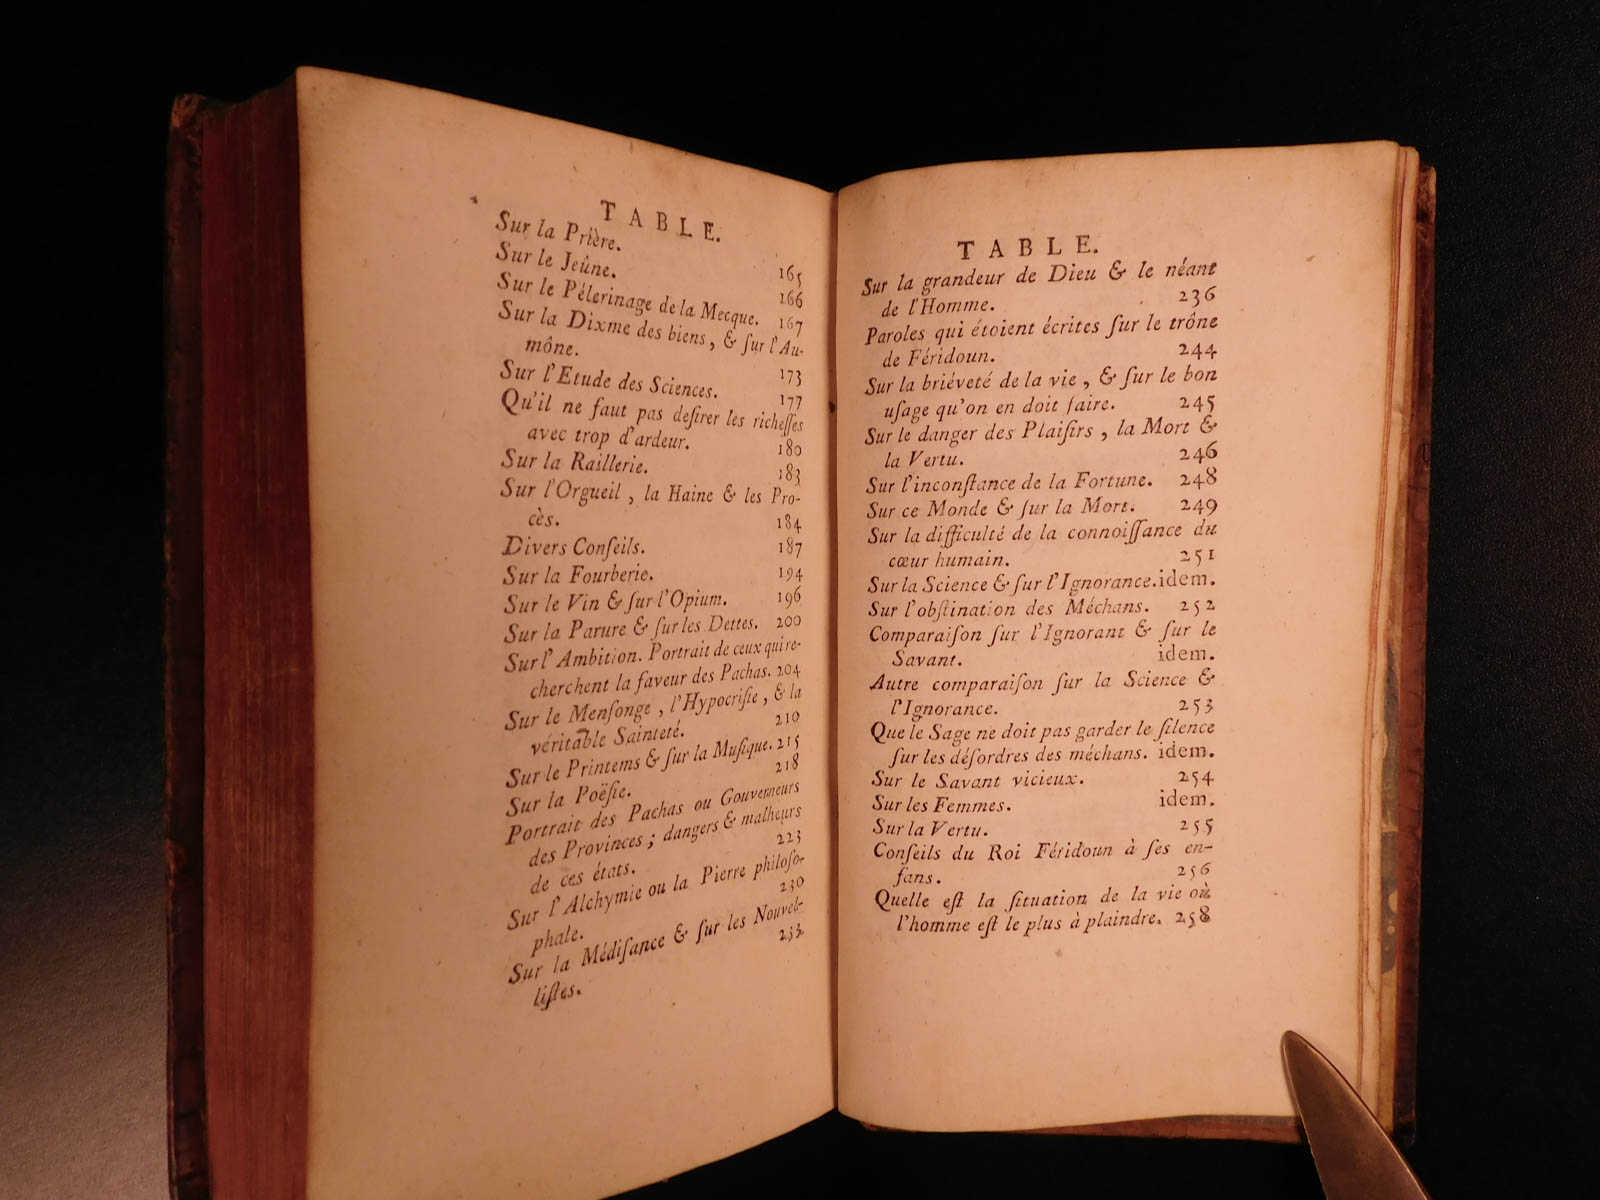 TABLE.
Sur la Prière. 165
Sur le Jeûne. 166
Sur le Pélerinage de la Mecque. 167
Sur la Dixme des biens, & ſur l'Au-
mône. 173
Sur l'Etude des Sciences. 177
Qu'il ne faut pas deſirer les richeſſes
avec trop d'ardeur. 180
Sur la Raillerie. 183
Sur l'Orgueil, la Haine & les Pro-
cès. 184
Divers Conſeils. 187
Sur la Fourberie. 194
Sur le Vin & ſur l'Opium. 196
Sur la Parure & ſur les Dettes. 200
Sur l'Ambition. Portrait de ceux qui re-
cherchent la faveur des Pachas. 204
Sur le Menſonge, l'Hypocriſie, & la
véritable Sainteté. 210
Sur le Printems & ſur la Muſique. 215
Sur la Poëſie. 218
Portrait des Pachas ou Gouverneurs
des Provinces; dangers & malheurs
de ces états. 223
Sur l'Alchymie ou la Pierre philoſo-
phale. 230
Sur la Médiſance & ſur les Nouvel-
liſtes. 233
TABLE.
Sur la grandeur de Dieu & le néant
de l'Homme. 236
Paroles qui étoient écrites ſur le trône
de Féridoun. 244
Sur la briéveté de la vie, & ſur le bon
uſage qu'on en doit faire. 245
Sur le danger des Plaiſirs, la Mort &
la Vertu. 246
Sur l'inconſtance de la Fortune. 248
Sur ce Monde & ſur la Mort. 249
Sur la difficulté de la connoiſſance du
cœur humain. 251
Sur la Science & ſur l'Ignorance. idem.
Sur l'obſtination des Méchans. 252
Comparaiſon ſur l'Ignorant & ſur le
Savant. idem.
Autre comparaiſon ſur la Science &
l'Ignorance. 253
Que le Sage ne doit pas garder le ſilence
ſur les déſordres des méchans. idem.
Sur le Savant vicieux. 254
Sur les Femmes. idem.
Sur la Vertu. 255
Conſeils du Roi Féridoun à ſes en-
fans. 256
Quelle eſt la ſituation de la vie où
l'homme eſt le plus à plaindre. 258